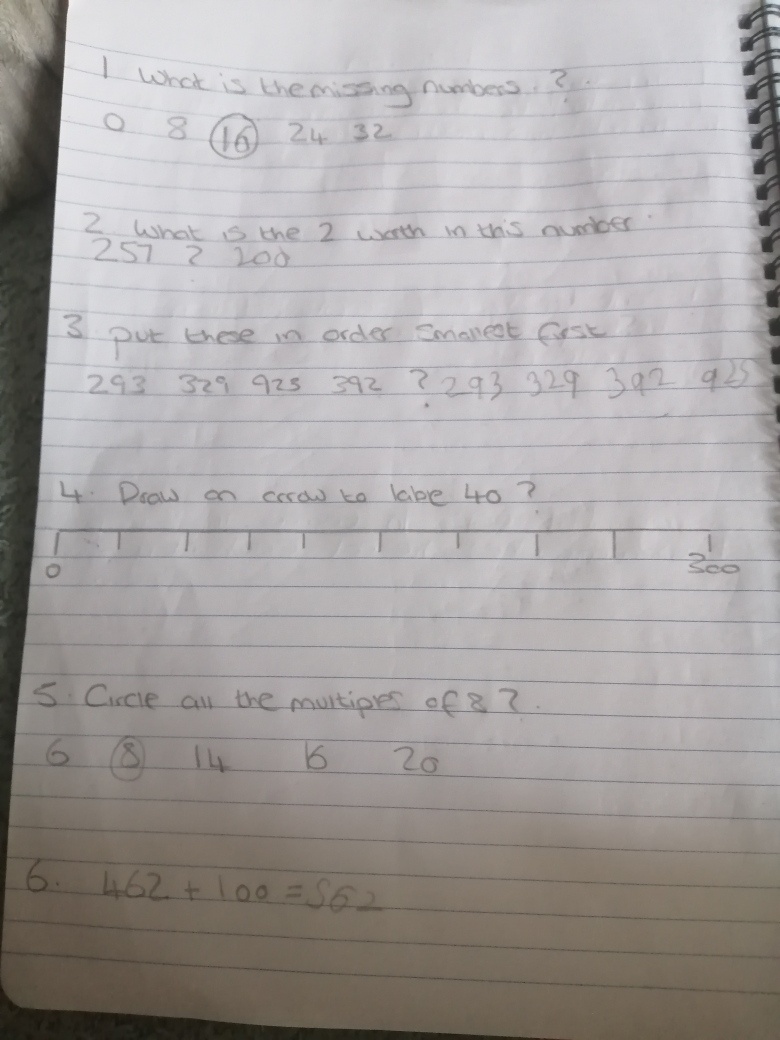 1 What is the missing numbers ?
0 8 16 24 32
2 What is the 2 worth in this number
257 ? 200
3 put these in order smallest first
293 329 925 392 ? 293 329 392 925
4. Draw an arrow to lable 40 ?
0 300
5. Circle all the multiples of 8 ?.
6 8 14 16 20
6. 462 + 100 = 562